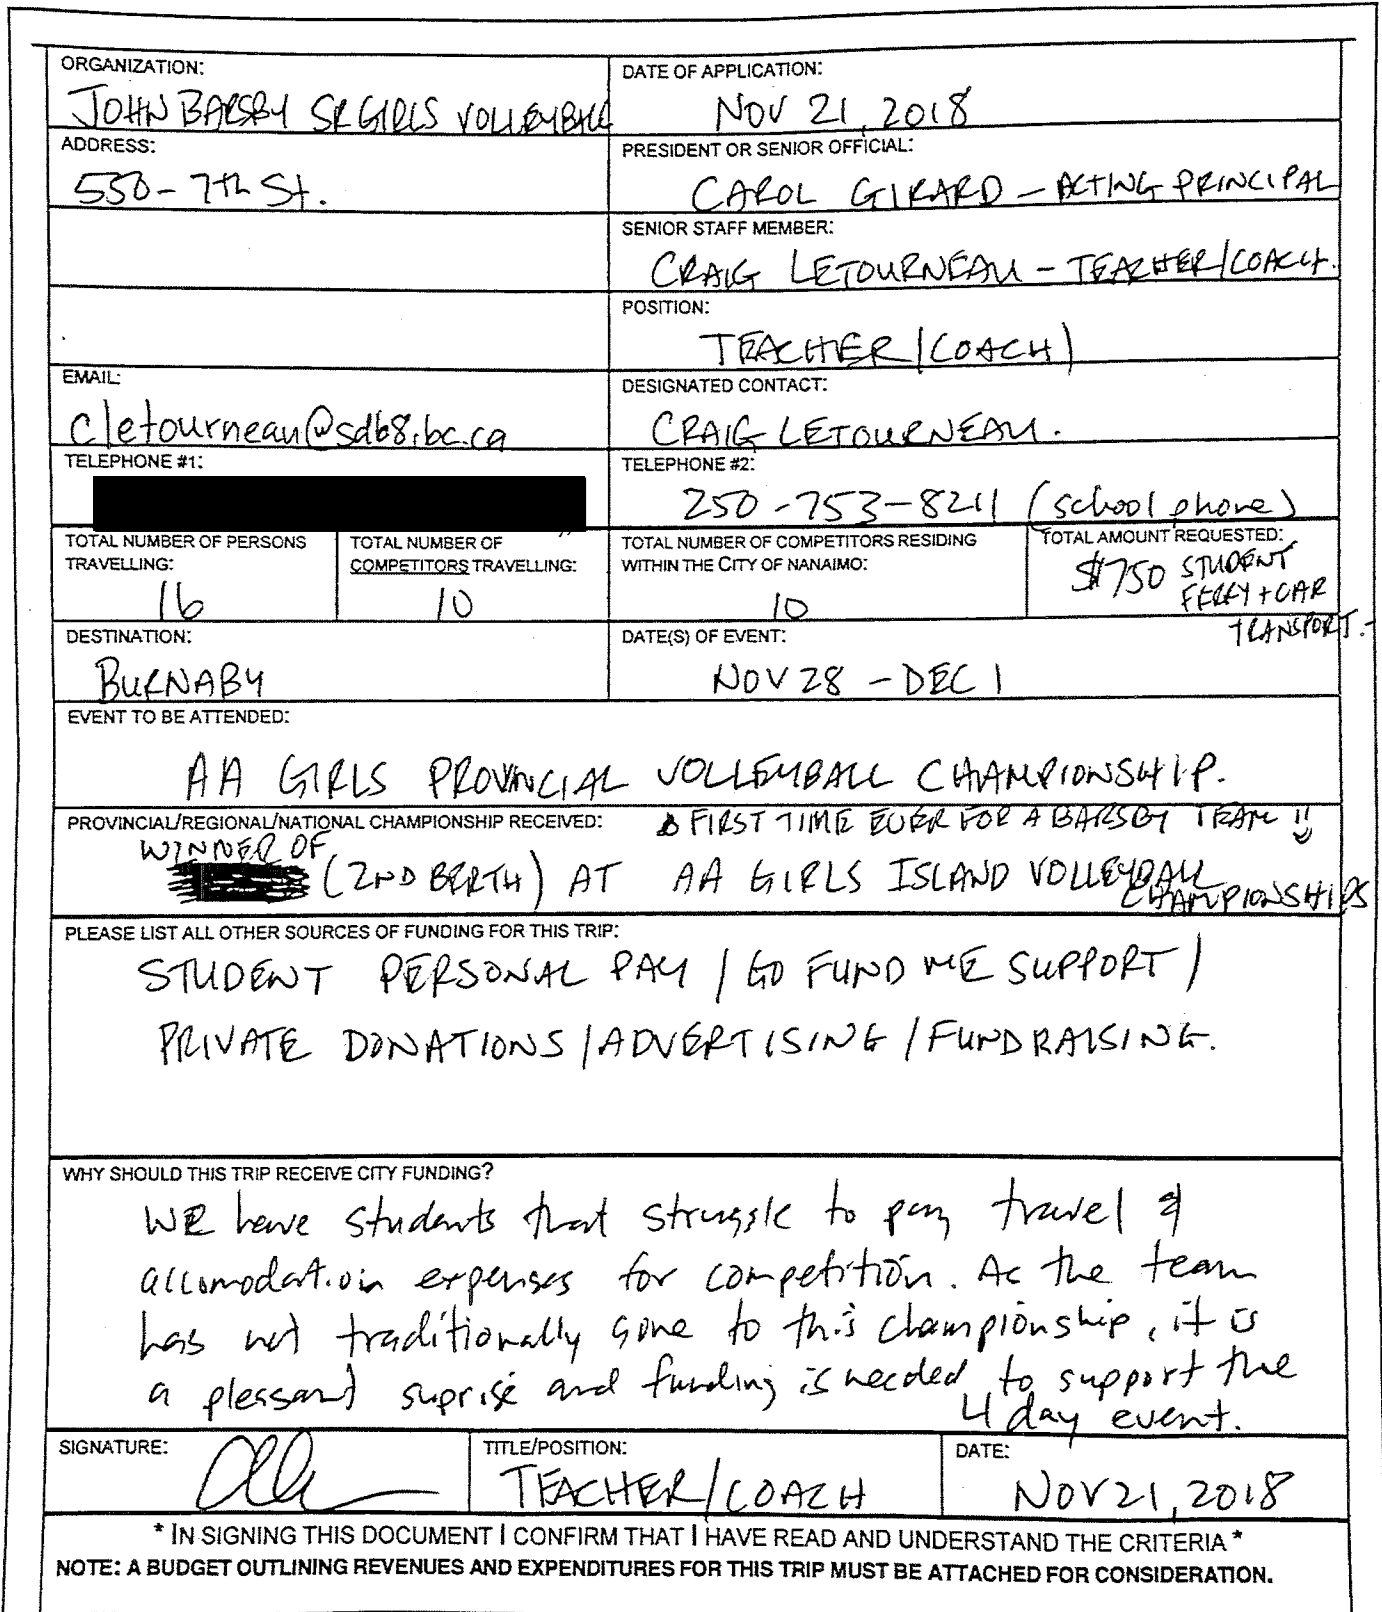 ORGANIZATION:
JOHN BARSBY SR GIRLS VOLLEYBALL
DATE OF APPLICATION:
NOV 21, 2018
ADDRESS:
550-7th St.
PRESIDENT OR SENIOR OFFICIAL:
CAROL GIRARD - ACTING PRINCIPAL
SENIOR STAFF MEMBER:
CRAIG LETOURNEAU - TEACHER/COACH.
POSITION:
TEACHER/COACH)
EMAIL:
cletourneau@sd68.bc.ca
DESIGNATED CONTACT:
CRAIG LETOURNEAU.
TELEPHONE #1:
TELEPHONE #2:
250-753-8211 (school phone)
TOTAL NUMBER OF PERSONS
TRAVELLING:
16
TOTAL NUMBER OF
COMPETITORS TRAVELLING:
10
TOTAL NUMBER OF COMPETITORS RESIDING
WITHIN THE CITY OF NANAIMO:
10
TOTAL AMOUNT REQUESTED:
$750 STUDENT
FERRY + CAR
TRANSPORT.
DESTINATION:
BURNABY
DATE(S) OF EVENT:
NOV 28 - DEC 1
EVENT TO BE ATTENDED:
AA GIRLS PROVINCIAL VOLLEYBALL CHAMPIONSHIP.
PROVINCIAL/REGIONAL/NATIONAL CHAMPIONSHIP RECEIVED:
FIRST TIME EVER FOR A BARSBY TEAM !!
WINNER OF
(2ND BERTH) AT AA GIRLS ISLAND VOLLEYBALL
CHAMPIONSHIPS
PLEASE LIST ALL OTHER SOURCES OF FUNDING FOR THIS TRIP:
STUDENT PERSONAL PAY / GO FUND ME SUPPORT /
PRIVATE DONATIONS / ADVERTISING / FUNDRAISING.
WHY SHOULD THIS TRIP RECEIVE CITY FUNDING?
WE have students that struggle to pay travel &
accomodation expenses for competition. As the team
has not traditionally gone to this championship, it is
a pleasant suprise and funding is needed to support the
4 day event.
SIGNATURE:
TITLE/POSITION:
TEACHER/COACH
DATE:
NOV 21, 2018
* IN SIGNING THIS DOCUMENT I CONFIRM THAT I HAVE READ AND UNDERSTAND THE CRITERIA *
NOTE: A BUDGET OUTLINING REVENUES AND EXPENDITURES FOR THIS TRIP MUST BE ATTACHED FOR CONSIDERATION.